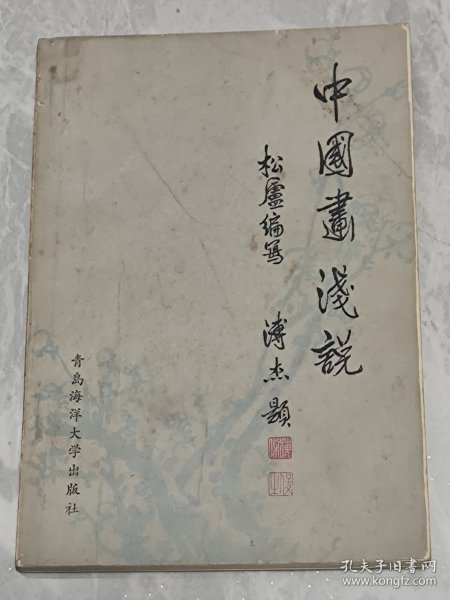 中國畫淺說
松廬编寫
溥杰題
青岛海洋大学出版社
孔夫子旧书网
www.kongfz.com